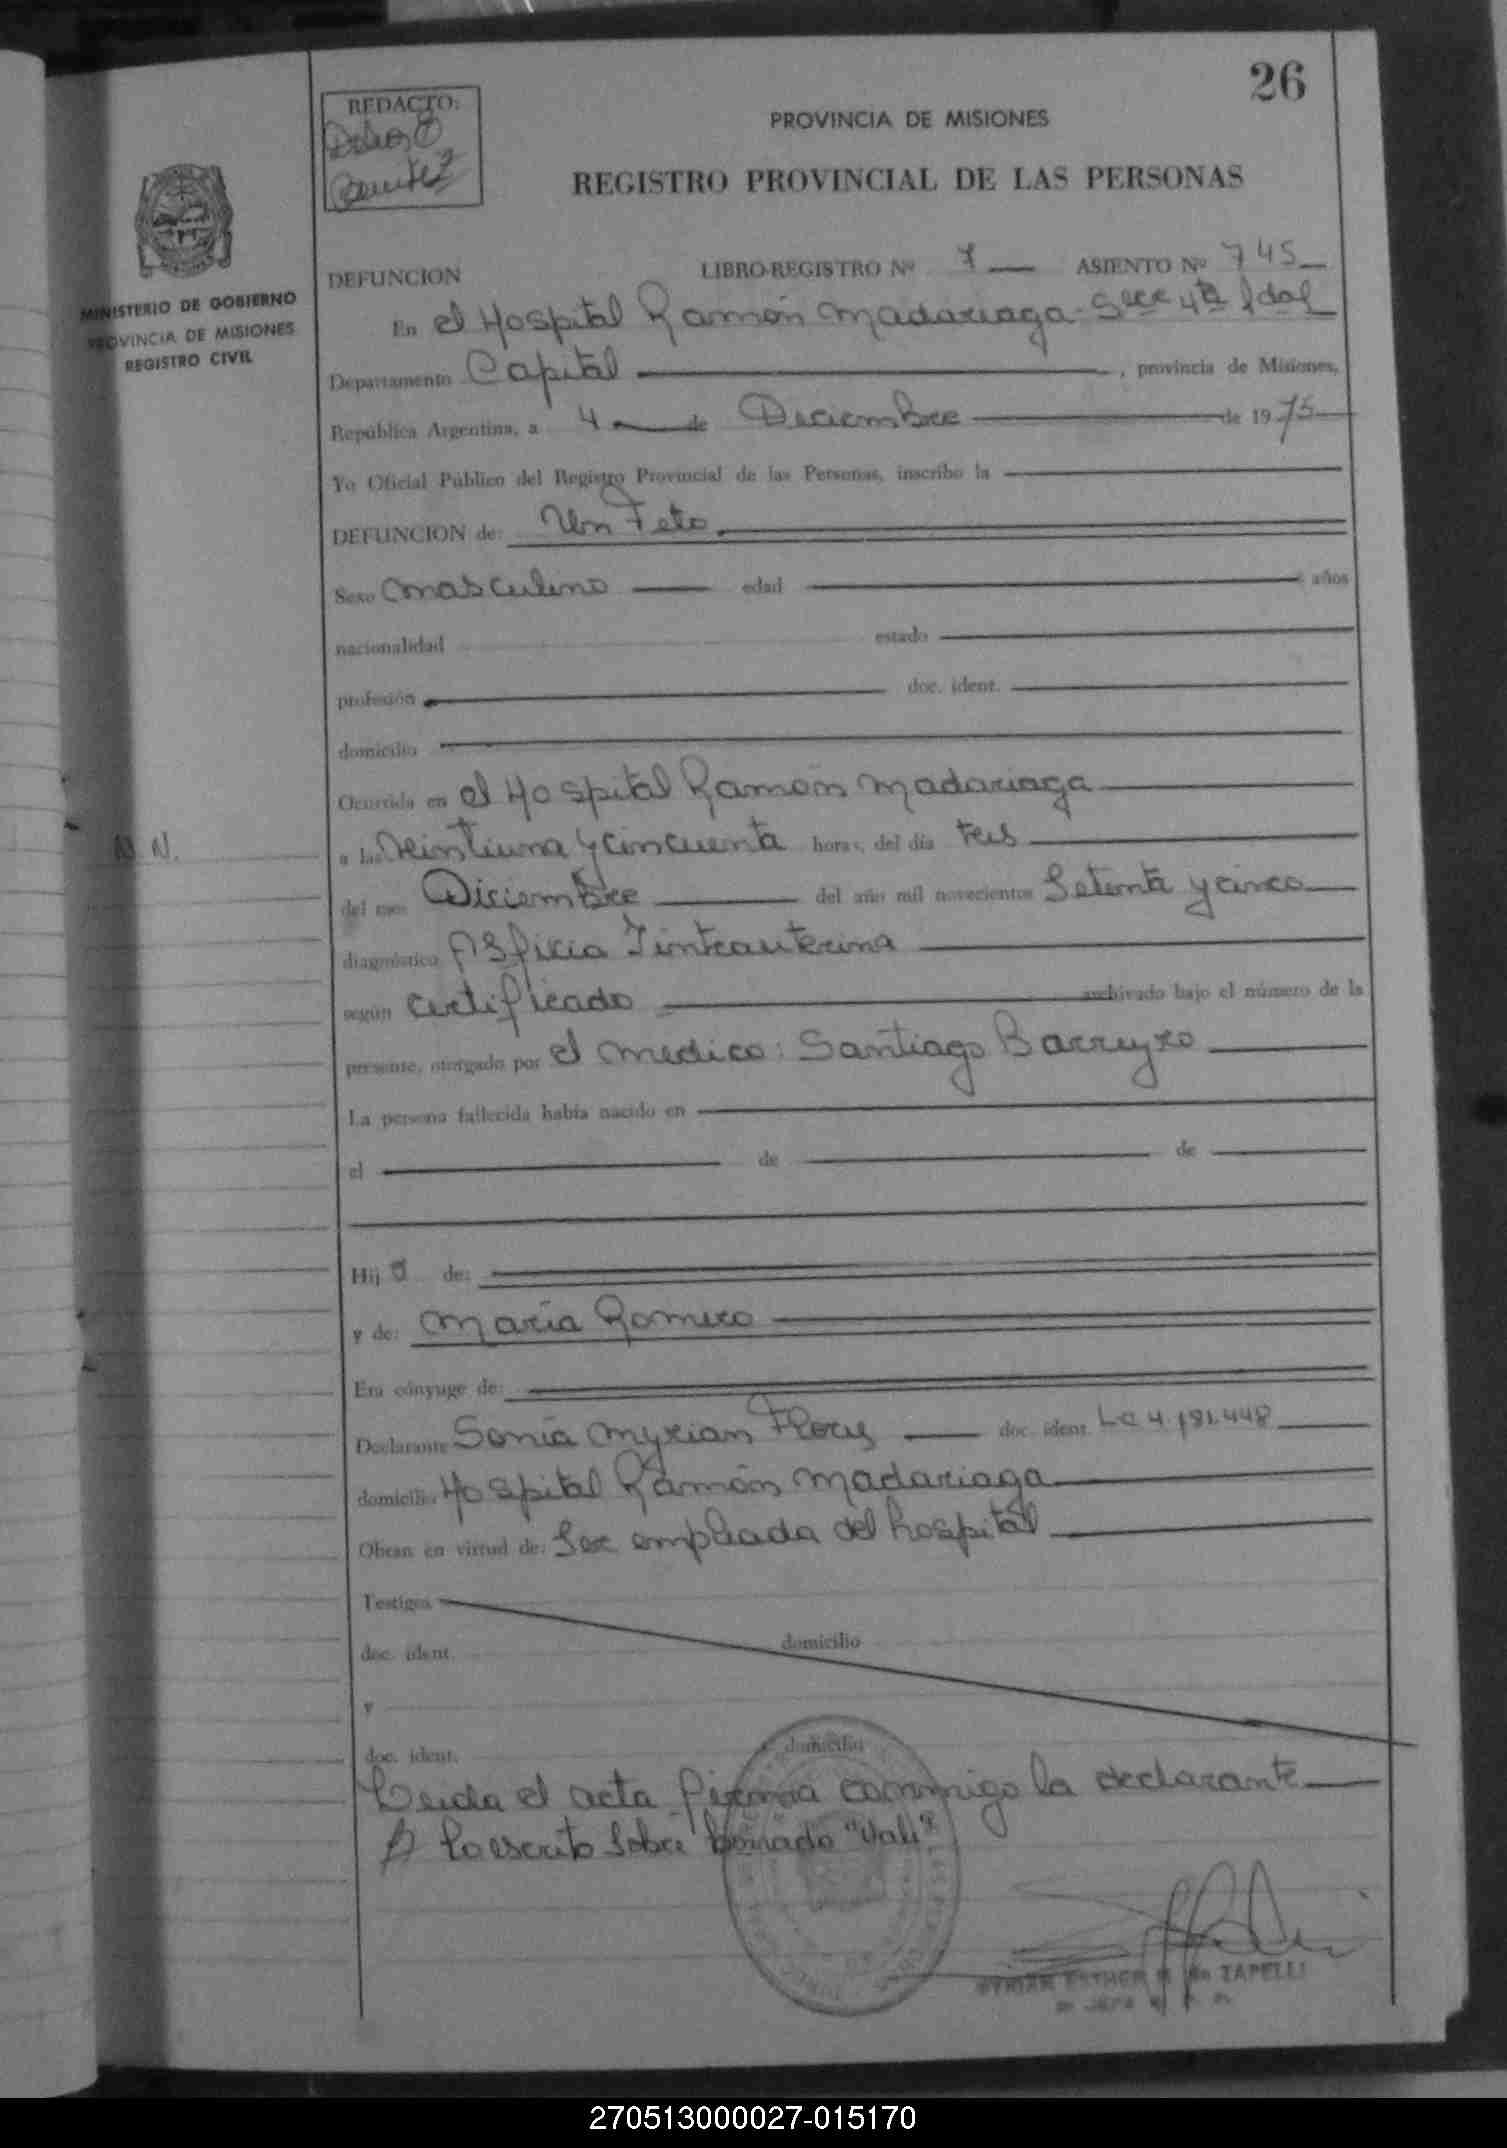 26
REDACTO:
Benitez
PROVINCIA DE MISIONES
REGISTRO PROVINCIAL DE LAS PERSONAS
MINISTERIO DE GOBIERNO
PROVINCIA DE MISIONES
REGISTRO CIVIL
DEFUNCION LIBRO-REGISTRO Nº 7 ASIENTO Nº 745
En el Hospital Ramón Madariaga - Secc 4ta
Departamento Capital, provincia de Misiones,
República Argentina, a 4 de Diciembre de 1975
Yo Oficial Público del Registro Provincial de las Personas, inscribo la
DEFUNCION de: Un Feto
Sexo masculino edad años
nacionalidad estado
profesión doc. ident.
domicilio
Ocurrida en el Hospital Ramón Madariaga
N.N.
a las Veintiuna y cincuenta horas, del día tres
del mes Diciembre del año mil novecientos Setenta y cinco
diagnóstico Asficia Iintrauterina
según certificado archivado bajo el número de la
presente, otorgado por el medico: Santiago Barreyro
La persona fallecida había nacido en
el de de
Hijo de:
y de: Maria Romero
Era cónyuge de:
Declarante Sonia Myrian Flores doc. ident. LC 4.181.448
domicilio Hospital Ramón Madariaga
Obran en virtud de: Ser empleada del hospital
Testigos
doc. ident. domicilio
y
doc. ident. domicilio
Leida el acta firma conmigo la declarante
Lo escrito sobre borrado "Vale"
MYRIAN ESTHER de ZAPELLI
270513000027-015170